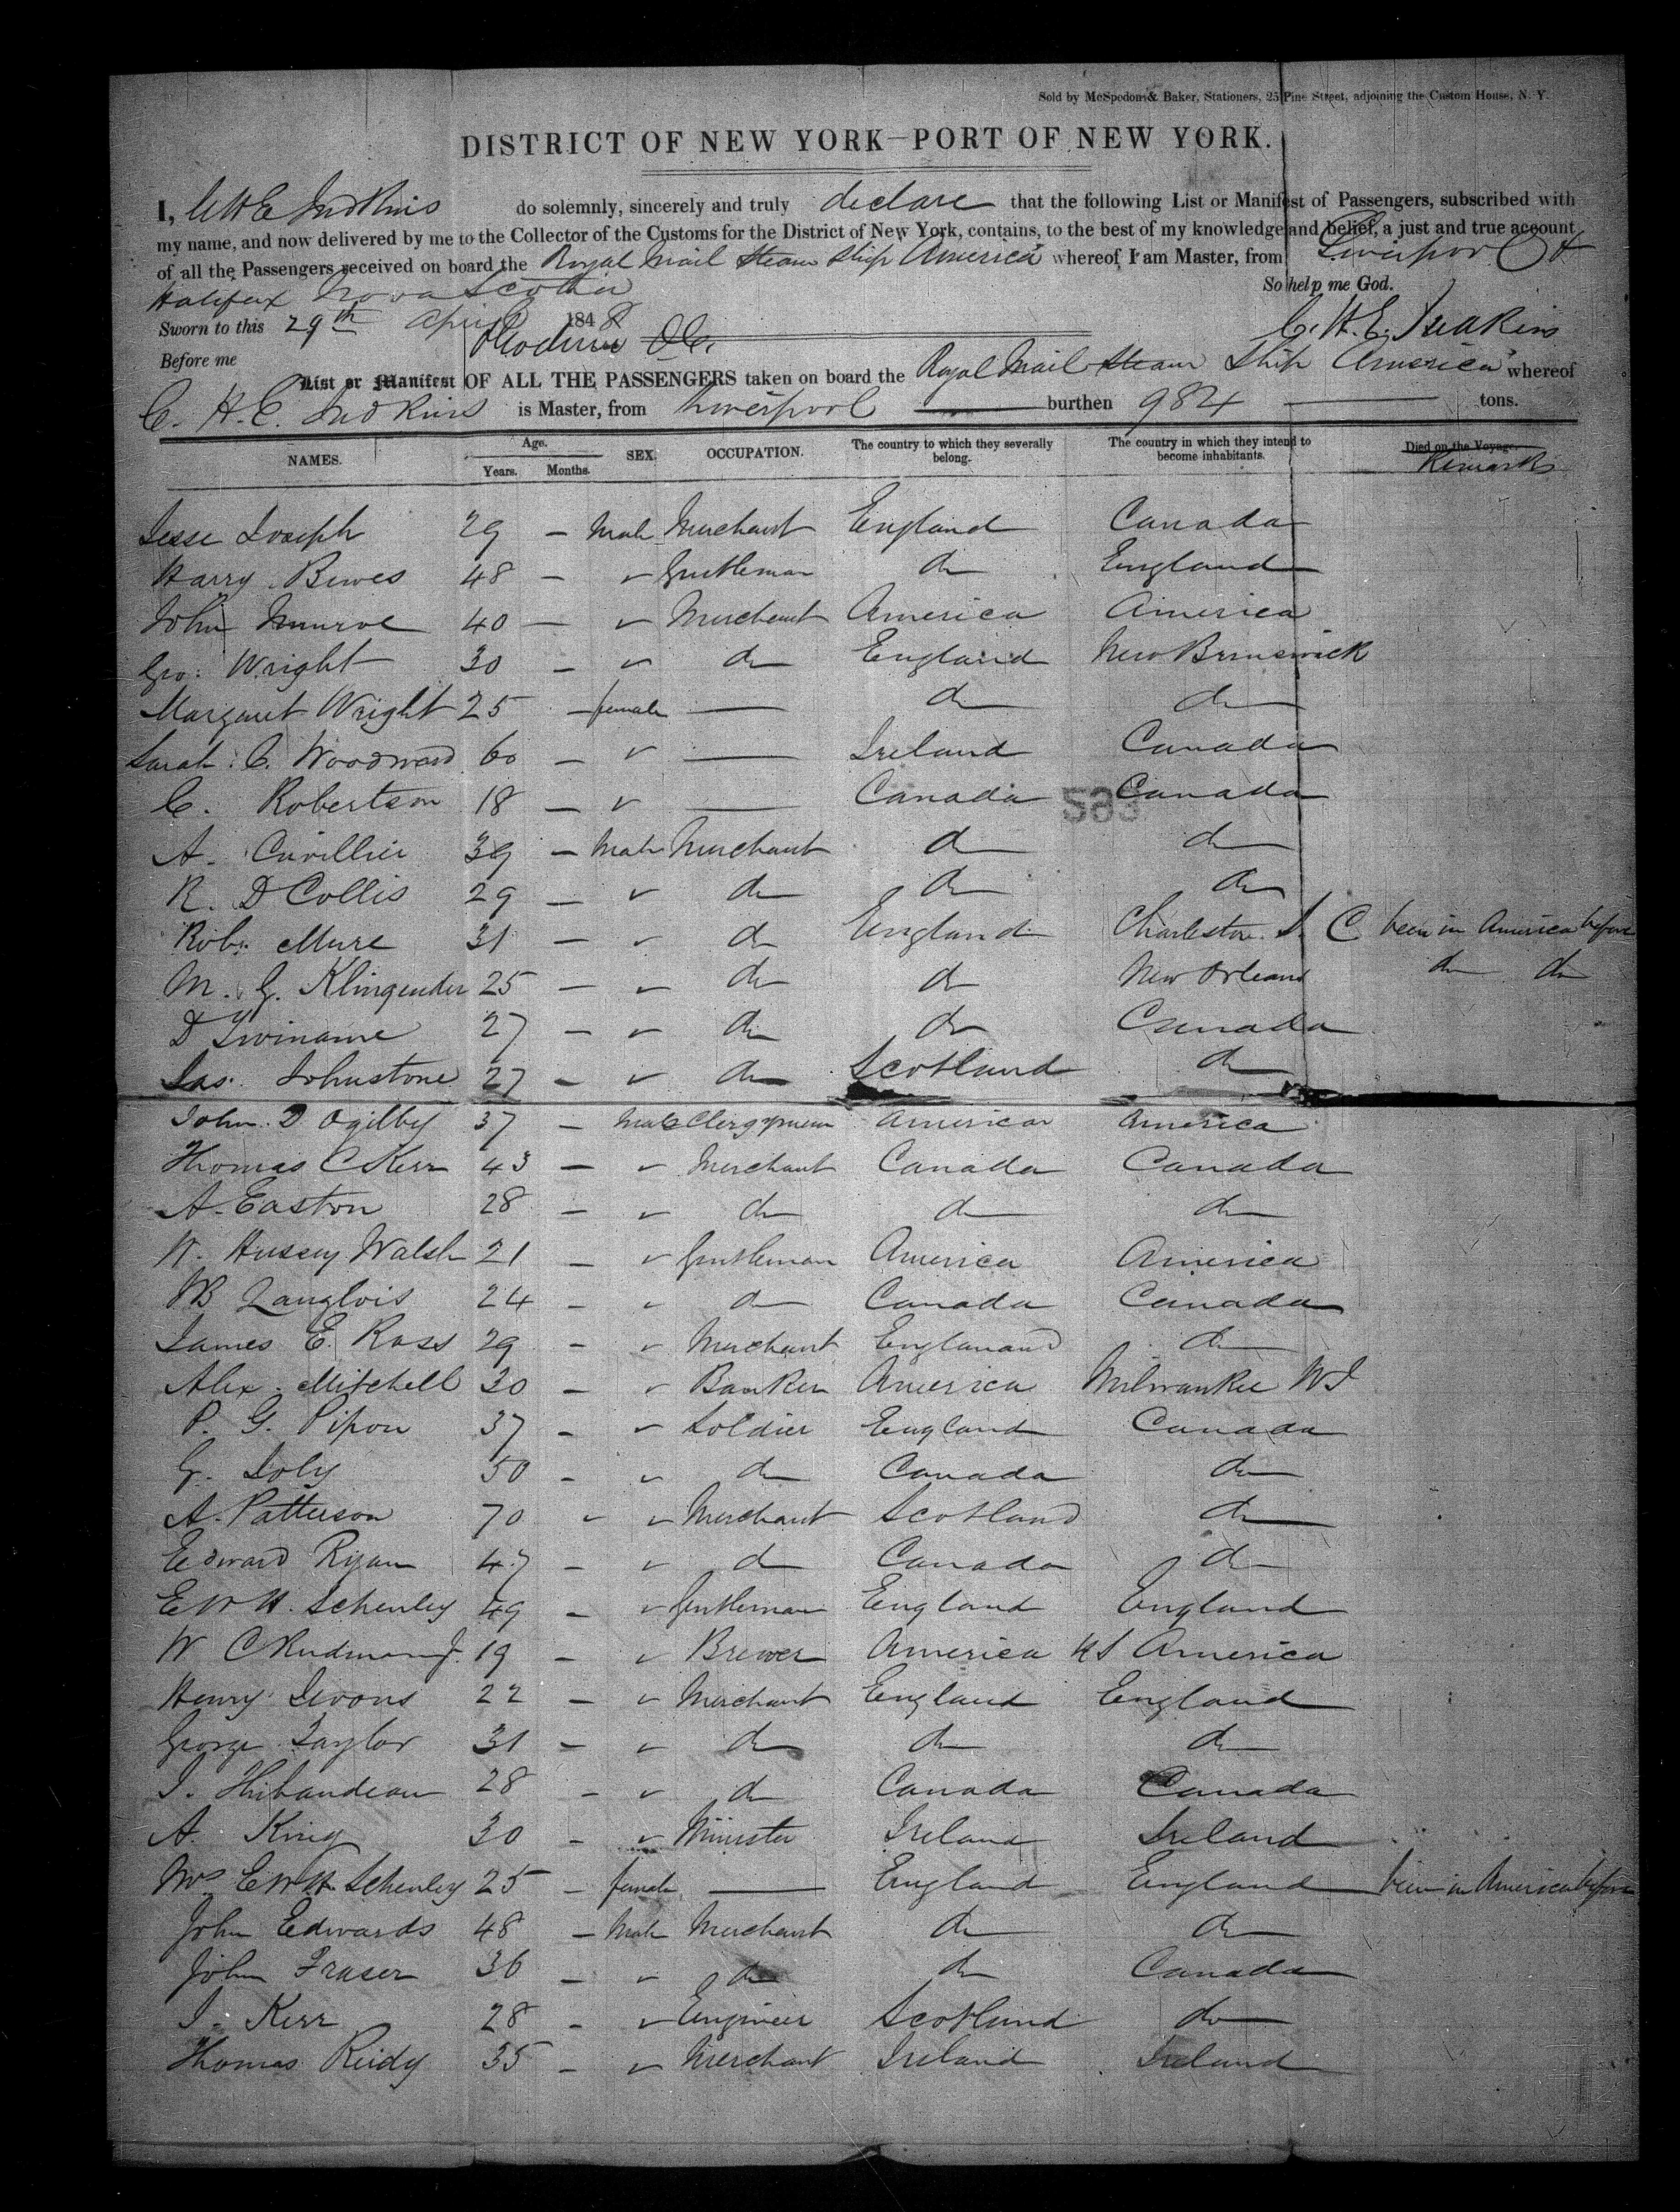 Sold by McSpedon & Baker, Stationers, 25 Pine Street, adjoining the Custom House, N. Y.
DISTRICT OF NEW YORK—PORT OF NEW YORK.
I, C H E Judkins do solemnly, sincerely and truly declare that the following List or Manifest of Passengers, subscribed with
my name, and now delivered by me to the Collector of the Customs for the District of New York, contains, to the best of my knowledge and belief, a just and true account
of all the Passengers received on board the Royal Mail Steam Ship America whereof I am Master, from Liverpool &
Halifax Nova Scotia So help me God.
Sworn to this 29th April 1848 C. H. E. Judkins
Before me
List or Manifest OF ALL THE PASSENGERS taken on board the Royal Mail Steam Ship America whereof
C. H. E. Judkins is Master, from Liverpool burthen 984 tons.
NAMES. Age. Years. Months. SEX. OCCUPATION. The country to which they severally belong. The country in which they intend to become inhabitants. Died on the Voyage. Remarks
Jesse Joseph 29 — Male Merchant England Canada
Harry Bewes 48 — " Gentleman do England
John Munroe 40 — " Merchant America America
Geo: Wright 30 — " do England New Brunswick
Margaret Wright 25 — female — do do
Sarah C. Woodward 60 — " — Ireland Canada
C. Robertson 18 — " — Canada Canada
583
A. Cuvillier 39 — Male Merchant do do
R. D Collis 29 — " do do do
Robt. Mure 31 — " do England Charleston S. C been in America before
M. G. Klingender 25 — " do do New Orleans do do
D Twiname 27 — " do do Canada
Jas. Johnstone 27 — " do Scotland do
John D Ogilby 37 — Male Clergyman America America
Thomas C Kerr 43 — " Merchant Canada Canada
A. Easton 28 — " do do do
W. Hussey Walsh 21 — " Gentleman America America
WB Langlois 24 — " do Canada Canada
James E. Ross 29 — " Merchant Englanand do
Alex. Mitchell 30 — " Banker America Milwaukee WI
P. G. Pipon 37 — " Soldier England Canada
G. Joly 50 — " do Canada do
A. Patterson 70 " " Merchant Scotland do
Edward Ryan 47 — " do Canada do
E W H. Schenley 49 — " Gentleman England England
W C Rudman Jr. 19 — " Brewer America US America
Henry Jevons 22 — " Merchant England England
George Taylor 31 — " do do do
J. Thibaudeau 28 — " do Canada Canada
A. King 30 — " Minister Ireland Ireland
Mrs E W H. Schenley 25 — female — England England been in America before
John Edwards 48 — Male Merchant do do
John Fraser 36 — " do do Canada
J. Kerr 28 — " Engineer Scotland do
Thomas Reidy 35 — " Merchant Ireland Ireland